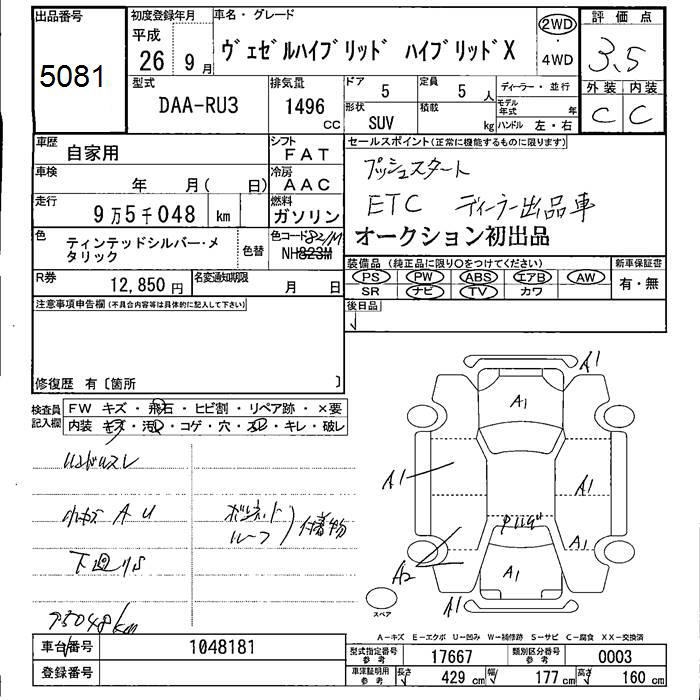 出品番号 初度登録年月 車名・グレード 評価点
5081 平成 26年 9月 ヴェゼルハイブリッド ハイブリッドX 2WD ・ 4WD 3.5
型式 排気量 ドア 5 定員 5人 ディーラー・並行 外装 内装
DAA-RU3 1496 CC 形状 SUV 積載 kg モデル年式 年 ハンドル 左・右 C C
車歴 自家用 シフト FAT セールスポイント(正常に機能するものに限ります)
車検 年 月( 日) 冷房 AAC プッシュスタート
走行 9万5千048 km 燃料 ガソリン ETC ディーラー出品車
色 ティンテッドシルバー・メタリック 色替 色コード 821M NH823M オークション初出品
装備品(純正品に限り○をつけてください) 新車保証書
R券 12,850円 名変通知期限 月 日 PS PW ABS エアB AW 有・無
SR ナビ TV カワ
注意事項申告欄(不具合内容等は具体的に記入して下さい) 後日品
修復歴 有〔箇所 〕
検査員記入欄 FW キズ・飛石・ヒビ割・リペア跡・×要
内装 キズ・汚レ・コゲ・穴・スレ・キレ・破レ
A1
A1
A1 A1
ハンドルスレ
小キズ AU ボンネット ルーフ 付着物
A1
A2 A1
下回りS
A1
95048km
スペア
A-キズ E-エクボ U-凹み W-補修跡 S-サビ C-腐食 XX-交換済
車台番号 1048181 型式指定番号 参考 17667 類別区分番号 参考 0003
登録番号 車注証明用 参考 長さ 429 cm 幅 177 cm 高さ 160 cm